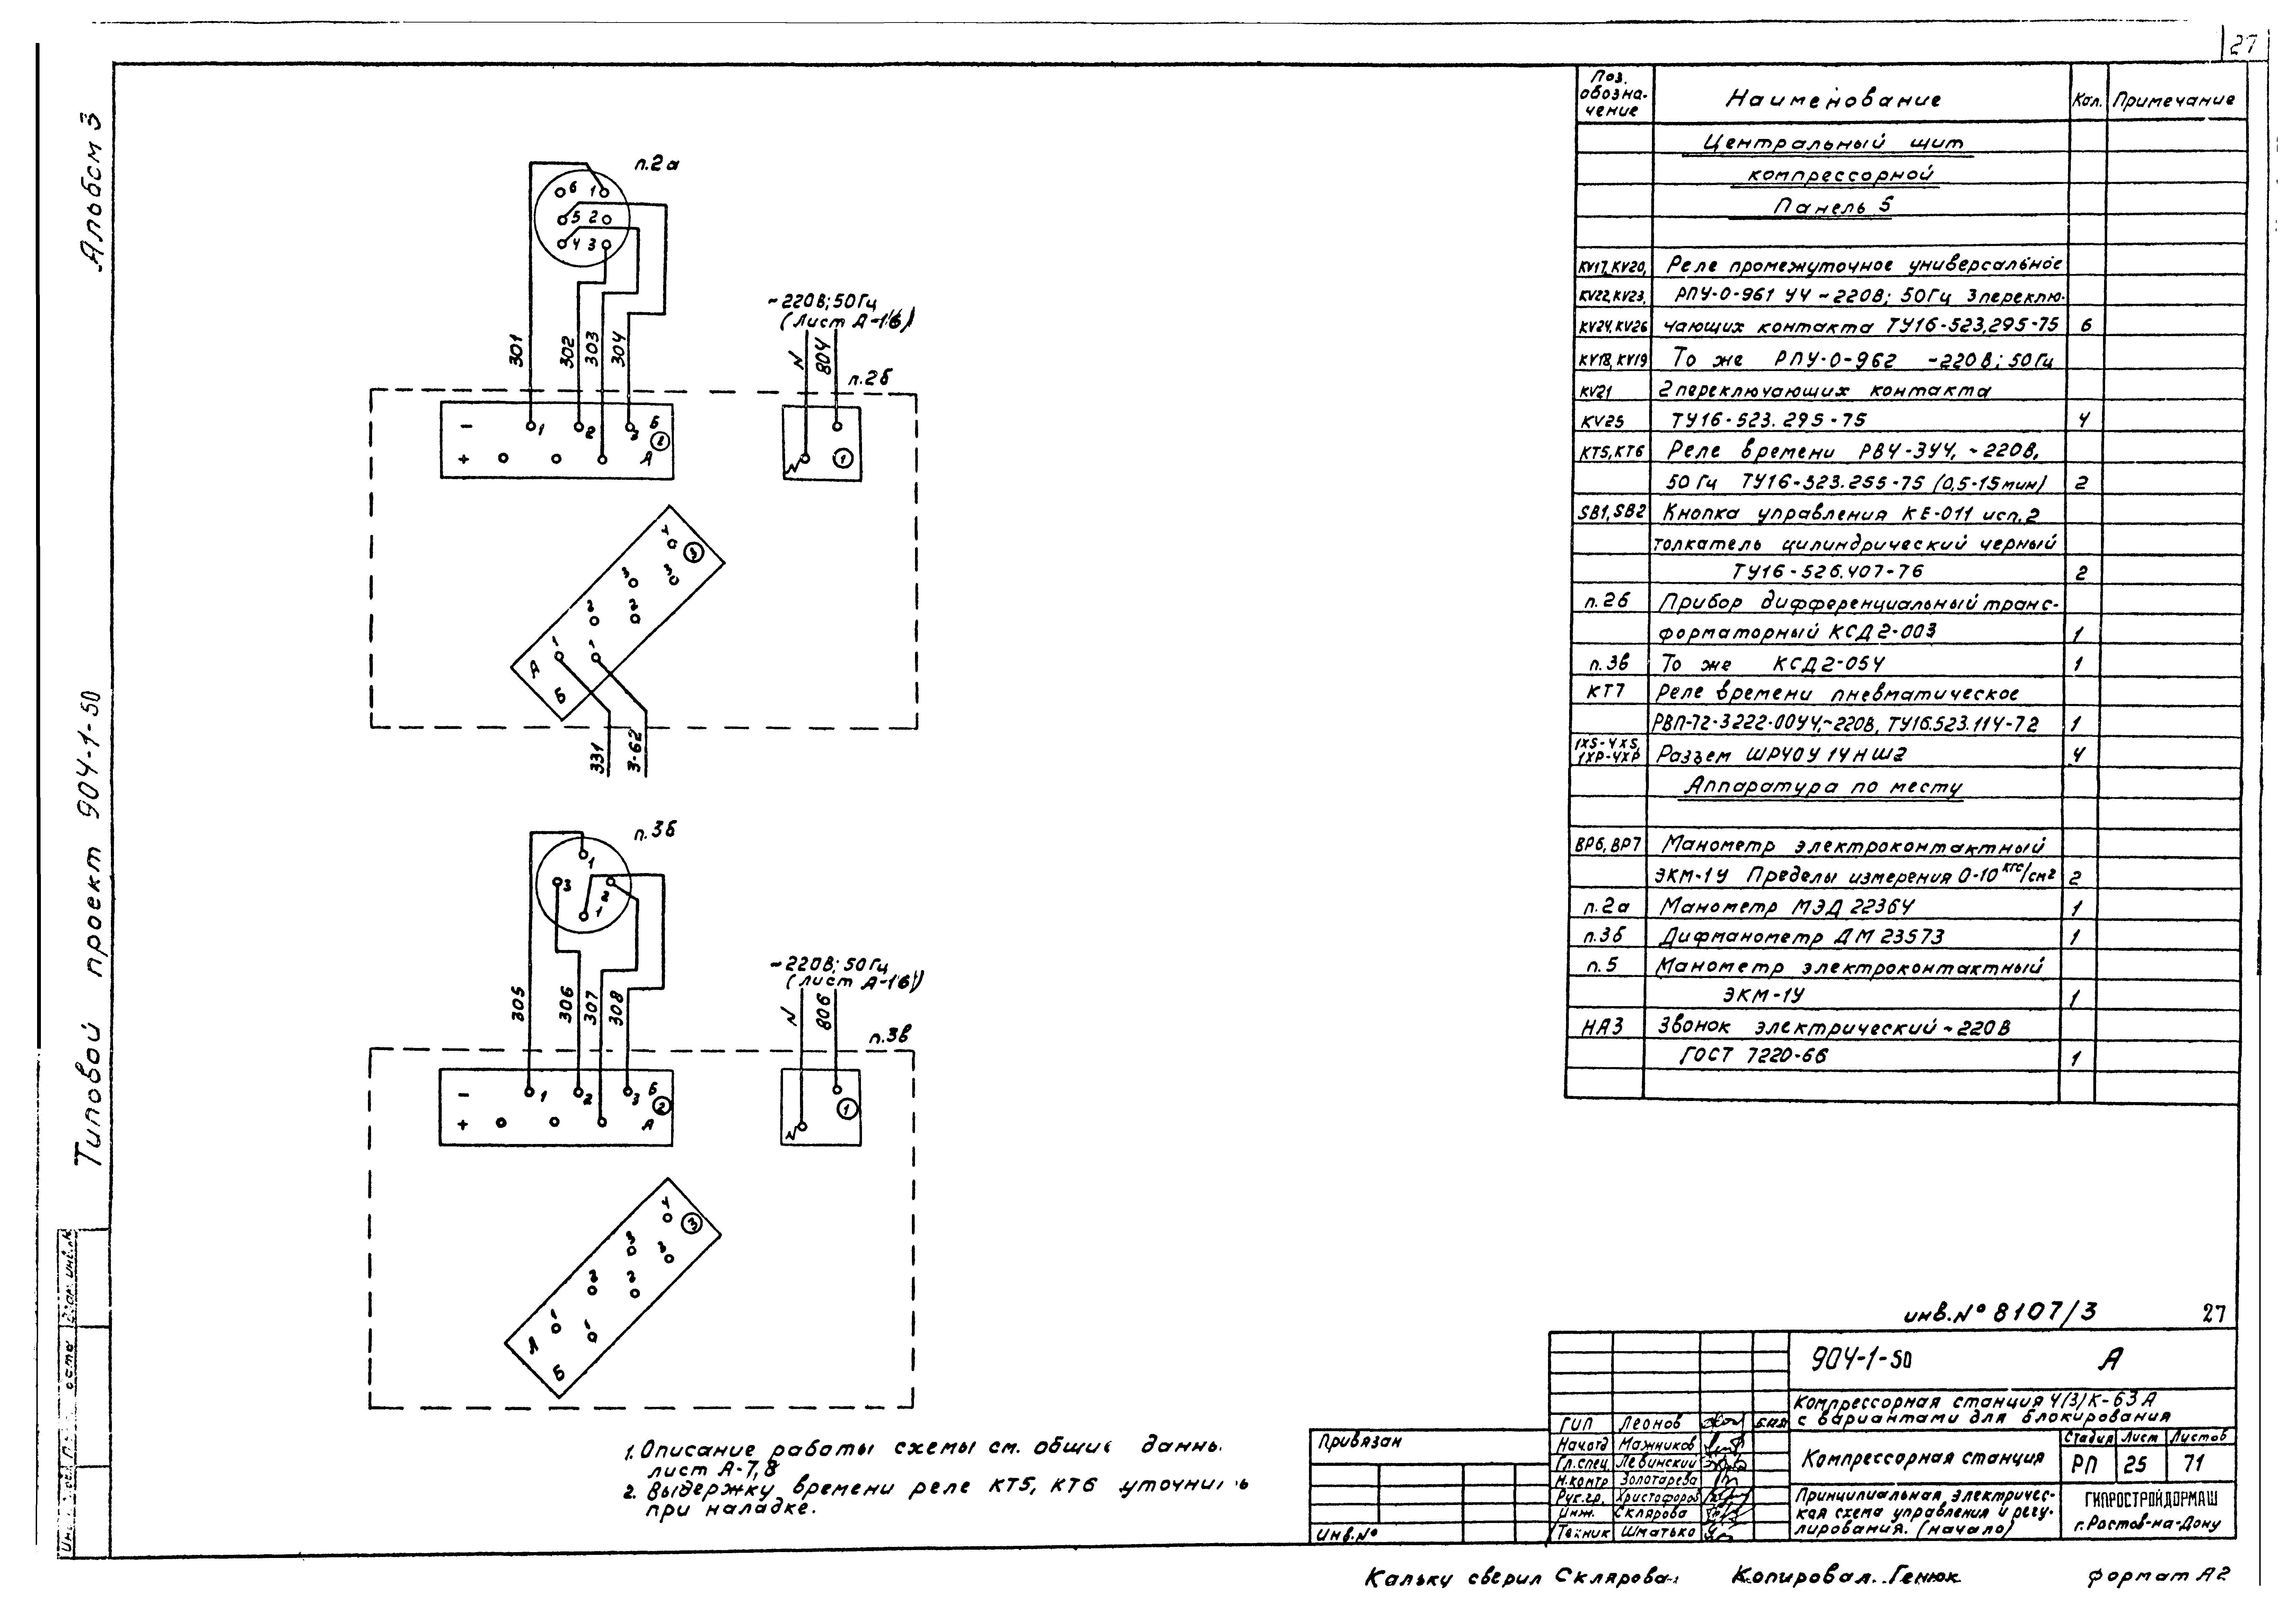 27
Альбом 3
Типовой проект 904-1-50
п.2а
6 1
5 2
4 3
~220В; 50Гц
(Лист А-16)
301
302
303
304
N
804
п.2б
- 1 2 3 Б
2
+ А
N 1
4
3
3 3
2 2
1 1
А
Б
331
3-62
п.3б
1
3 2
1
~220В; 50Гц
(Лист А-16)
305
306
307
308
N
806
п.3в
- 1 2 3 Б
2
+ А
N 1
4
3
3 3
2 2
1 1
А
Б
1. Описание работы схемы см. общие
лист А-7,8
2. Выдержку времени реле КТ5, КТ6
при наладке.
Поз. обозна-чение Наименование Кол. Примечание
Центральный щит
компрессорной
Панель 5
KV17, KV20, Реле промежуточное универсальное
KV22, KV23, РПУ-0-961 У4 ~220В; 50Гц 3 переклю-
KV24, KV26 чающих контакта ТУ16-523.295-75 6
KV18, KV19 То же РПУ-0-962 ~220В; 50Гц
KV21 2 переключающих контакта
KV25 ТУ16-523.295-75 4
КТ5, КТ6 Реле времени РВ4-3У4, ~220В,
50Гц ТУ16-523.255-75 (0,5-15мин) 2
SB1, SB2 Кнопка управления КЕ-011 исп.2
толкатель цилиндрический черный
ТУ16-526.407-76 2
п.2б Прибор дифференциальный транс-
форматорный КСД2-003 1
п.3в То же КСД2-054 1
КТ7 Реле времени пневматическое
РВП-72-3222-00У4, ~220В, ТУ16.523.114-72 1
1XS-4XS, 1XP-4XP Разъем ШР40У14НШ2 4
Аппаратура по месту
ВР6, ВР7 Манометр электроконтактный
ЭКМ-1У Пределы измерения 0-10 кгс/см2 2
п.2а Манометр МЭД 22364 1
п.3б Дифманометр ДМ 23573 1
п.5 Манометр электроконтактный
ЭКМ-1У 1
НА3 Звонок электрический ~220В
ГОСТ 7220-66 1
инв.№ 8107/3 27
904-1-50 А
Компрессорная станция 4(3)К-63А
с вариантами для блокирования
Компрессорная станция
Стадия Лист Листов
РП 25 71
Принципиальная электричес-
кая схема управления и регу-
лирования. (начало)
ГИПРОСТРОЙДОРМАШ
г. Ростов-на-Дону
ГИП Леонов
Нач.отд Мажников
Гл.спец Левинский
Н.контр Золотарева
Рук.гр. Христофоров
Инж. Склярова
Техник Шматько
Привязан
Инв.№
Кальку сверил Склярова
Копировал Генюк
формат А2